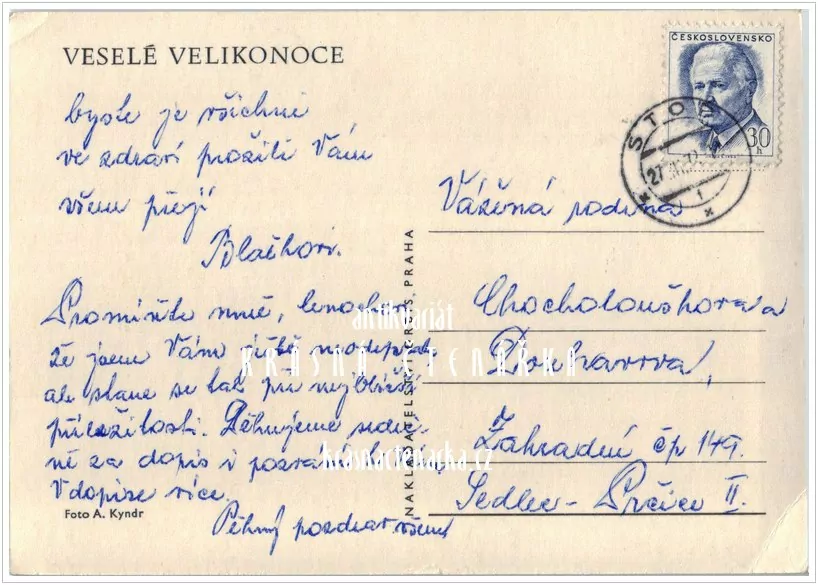 VESELÉ VELIKONOCE
byste je všichni
ve zdraví prožili Vám
všem přejí
Blažkovi.
Promiňte mně, lenochovi
že jsem Vám ještě neodepsal,
ale stane se tak při nejbližší
příležitosti. Děkujeme srdeč-
ně za dopis i pozvání
V dopise více.
Pěkný pozdrav všem
Foto A. Kyndr
NAKLADATELSTVÍ ORBIS, PRAHA
ČESKOSLOVENSKO
30 h
STOD
27
1
Vážená rodina
Chocholouškova
Zahradní čp 149.
Sedlec - Prčice II.
antikvariát
KRÁSNÁ ČTENÁŘKA
krasnactenarka.cz